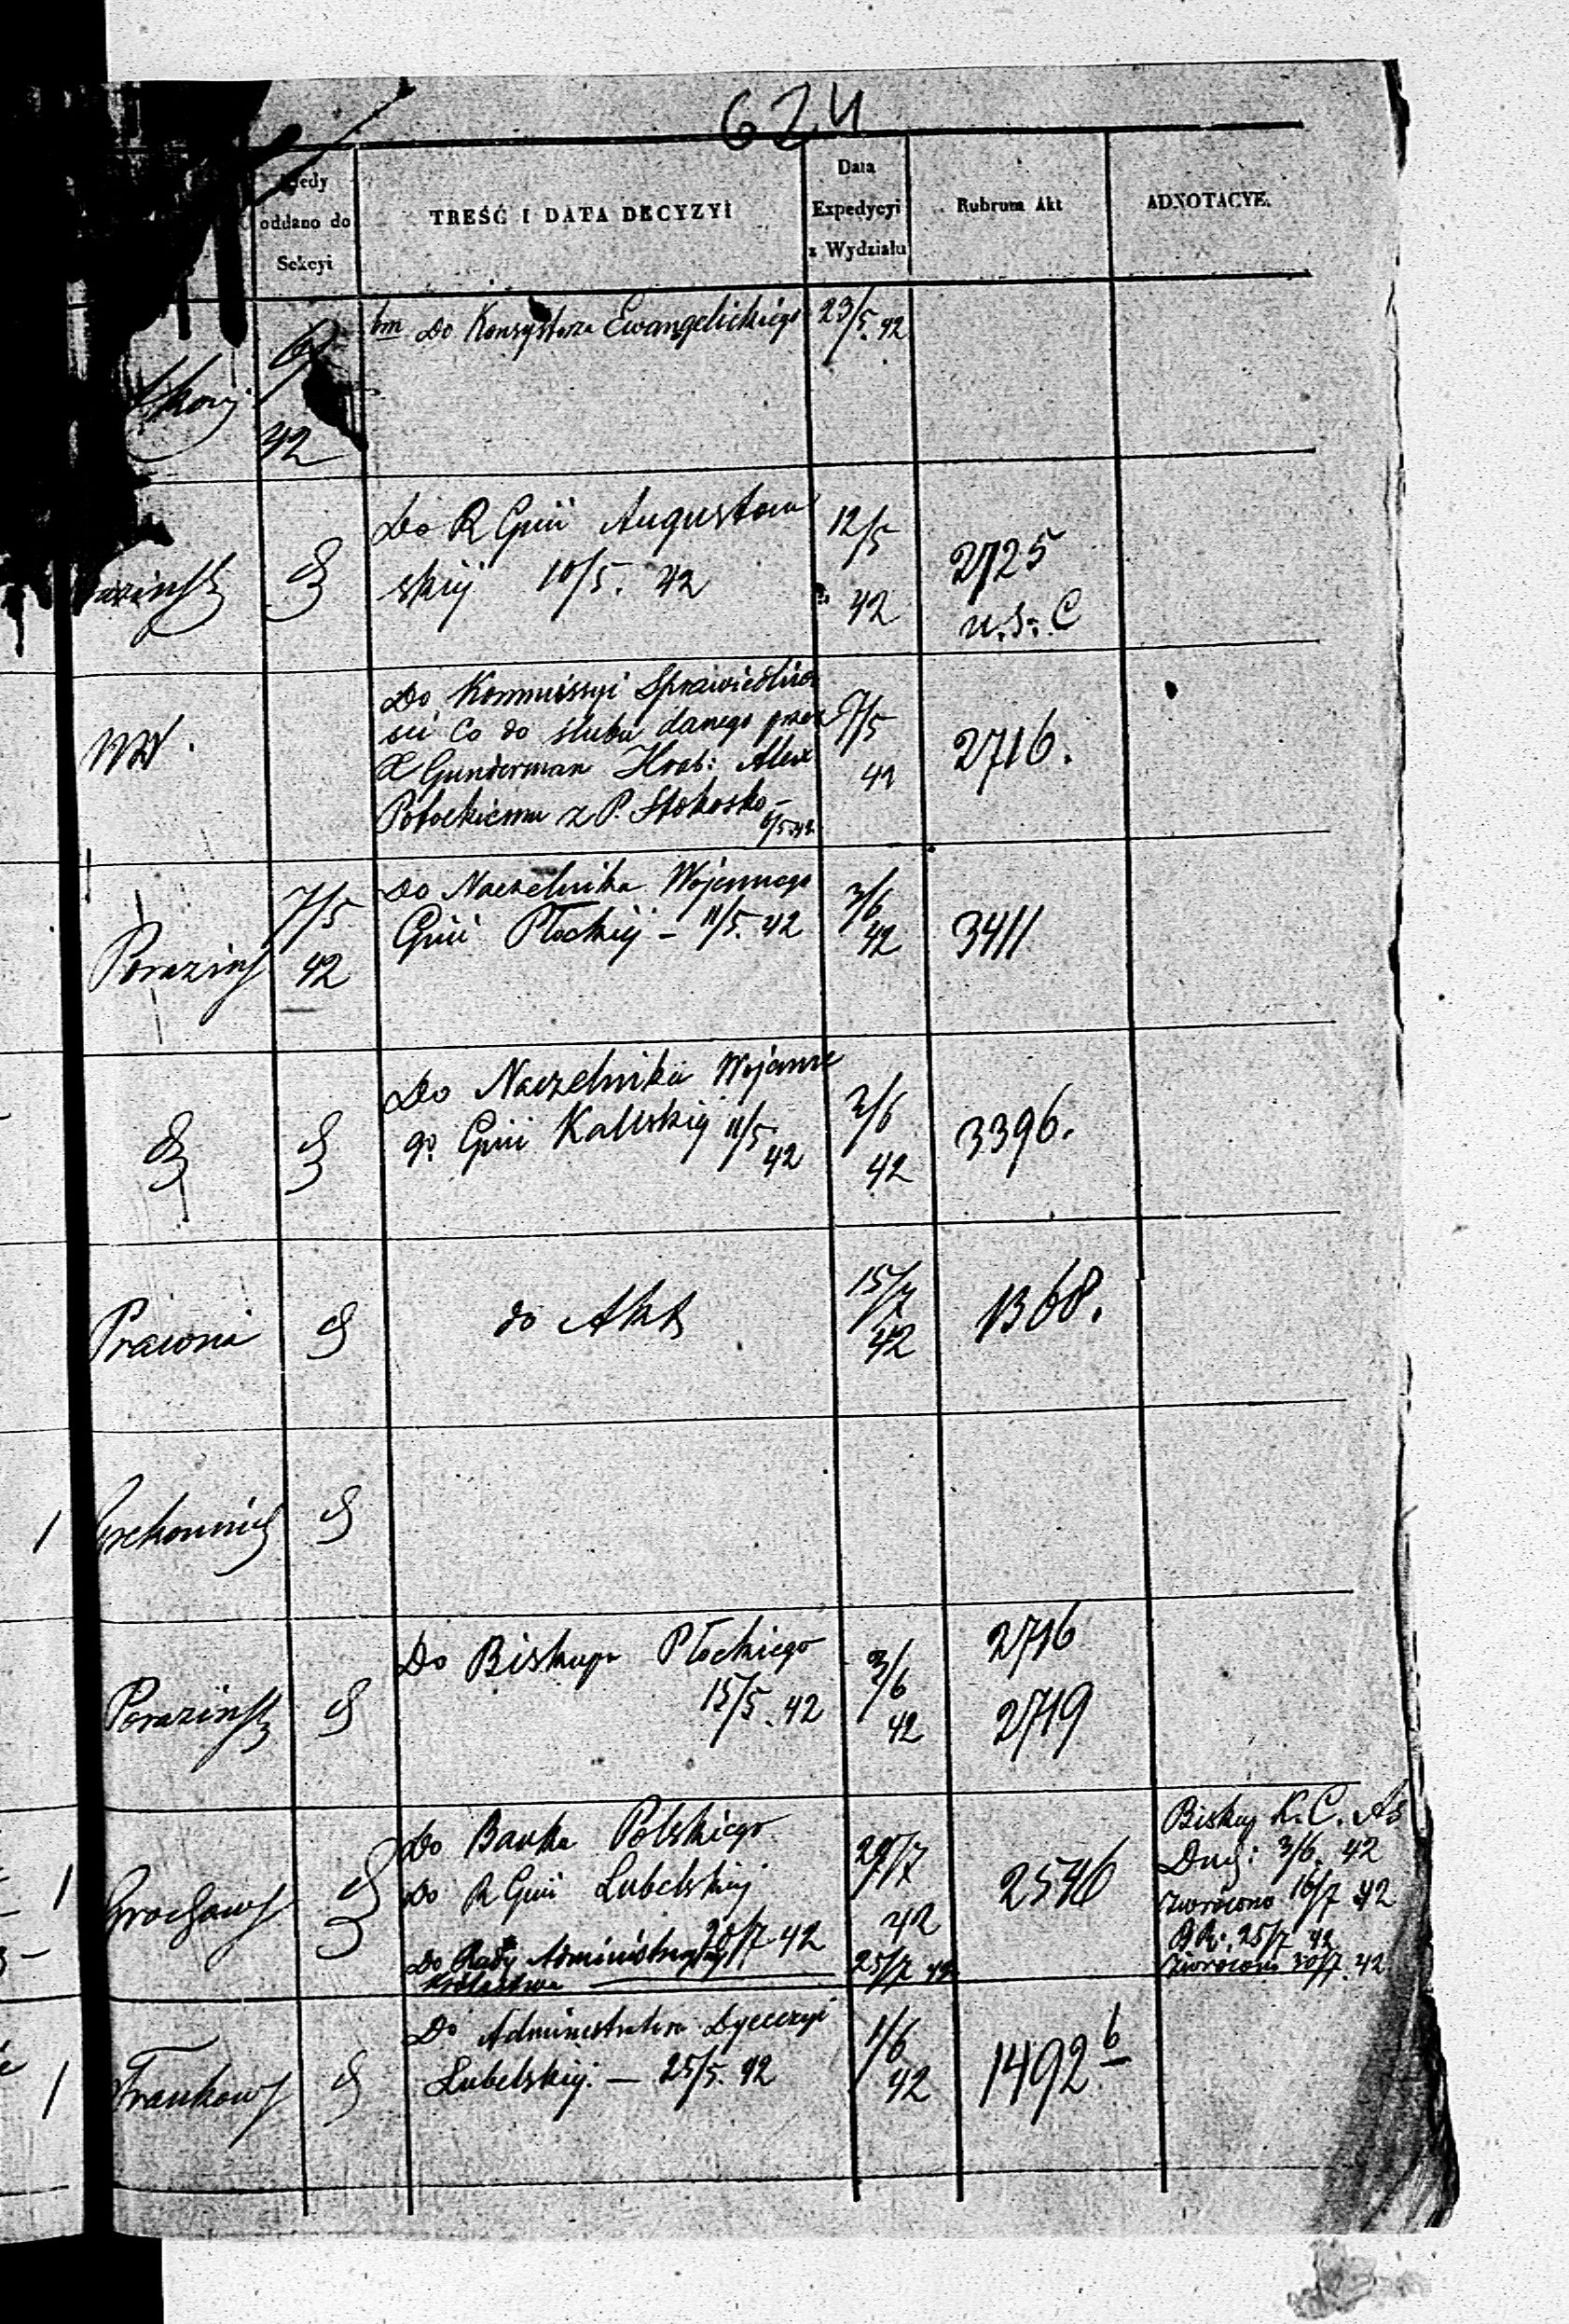 624
oddano do
Sekcyi
TREŚĆ I DATA DECYZYI
Data
Expedycyi
z Wydziału
Rubrum Akt
ADNOTACYE.
42
Do Konsystorza Ewangelickiego
23/5. 42
Do R Gnii Augustow
skiij 10/5. 42
12/5
42
2725
Do Kommissyi Sprawiedliwo
sci Co do slubu danego przez
X Gunderman Hrab: Alex
Potockiemu z P.
7/5
42
2716.
7/5
42
Do Naczelnika Wojennego
Gnii Płockiij – 11/5. 42
3/6
42
3411
Do Naczelnika Wojenne
go Gnii Kaliskiij 11/5
42
3/6
42
3396.
do Akt
15/7
42
1368.
Do Biskupa Płockiego
15/5. 42
3/6
42
2716
2719
Do Banku Polskiego
Do R Gnii Lubelskiij
20/7 42
Do Rady Administracyj
Królestwa
29/7
42
25/7 42
2546
Biskup K. C.
Duch: 3/6. 42
zwrócono 16/7 42
25/7 42
zwrócono 30/7. 42
Do Administratora Dyecezyi
Lubelskiij. — 25/5. 42
1/6
42
1492 b